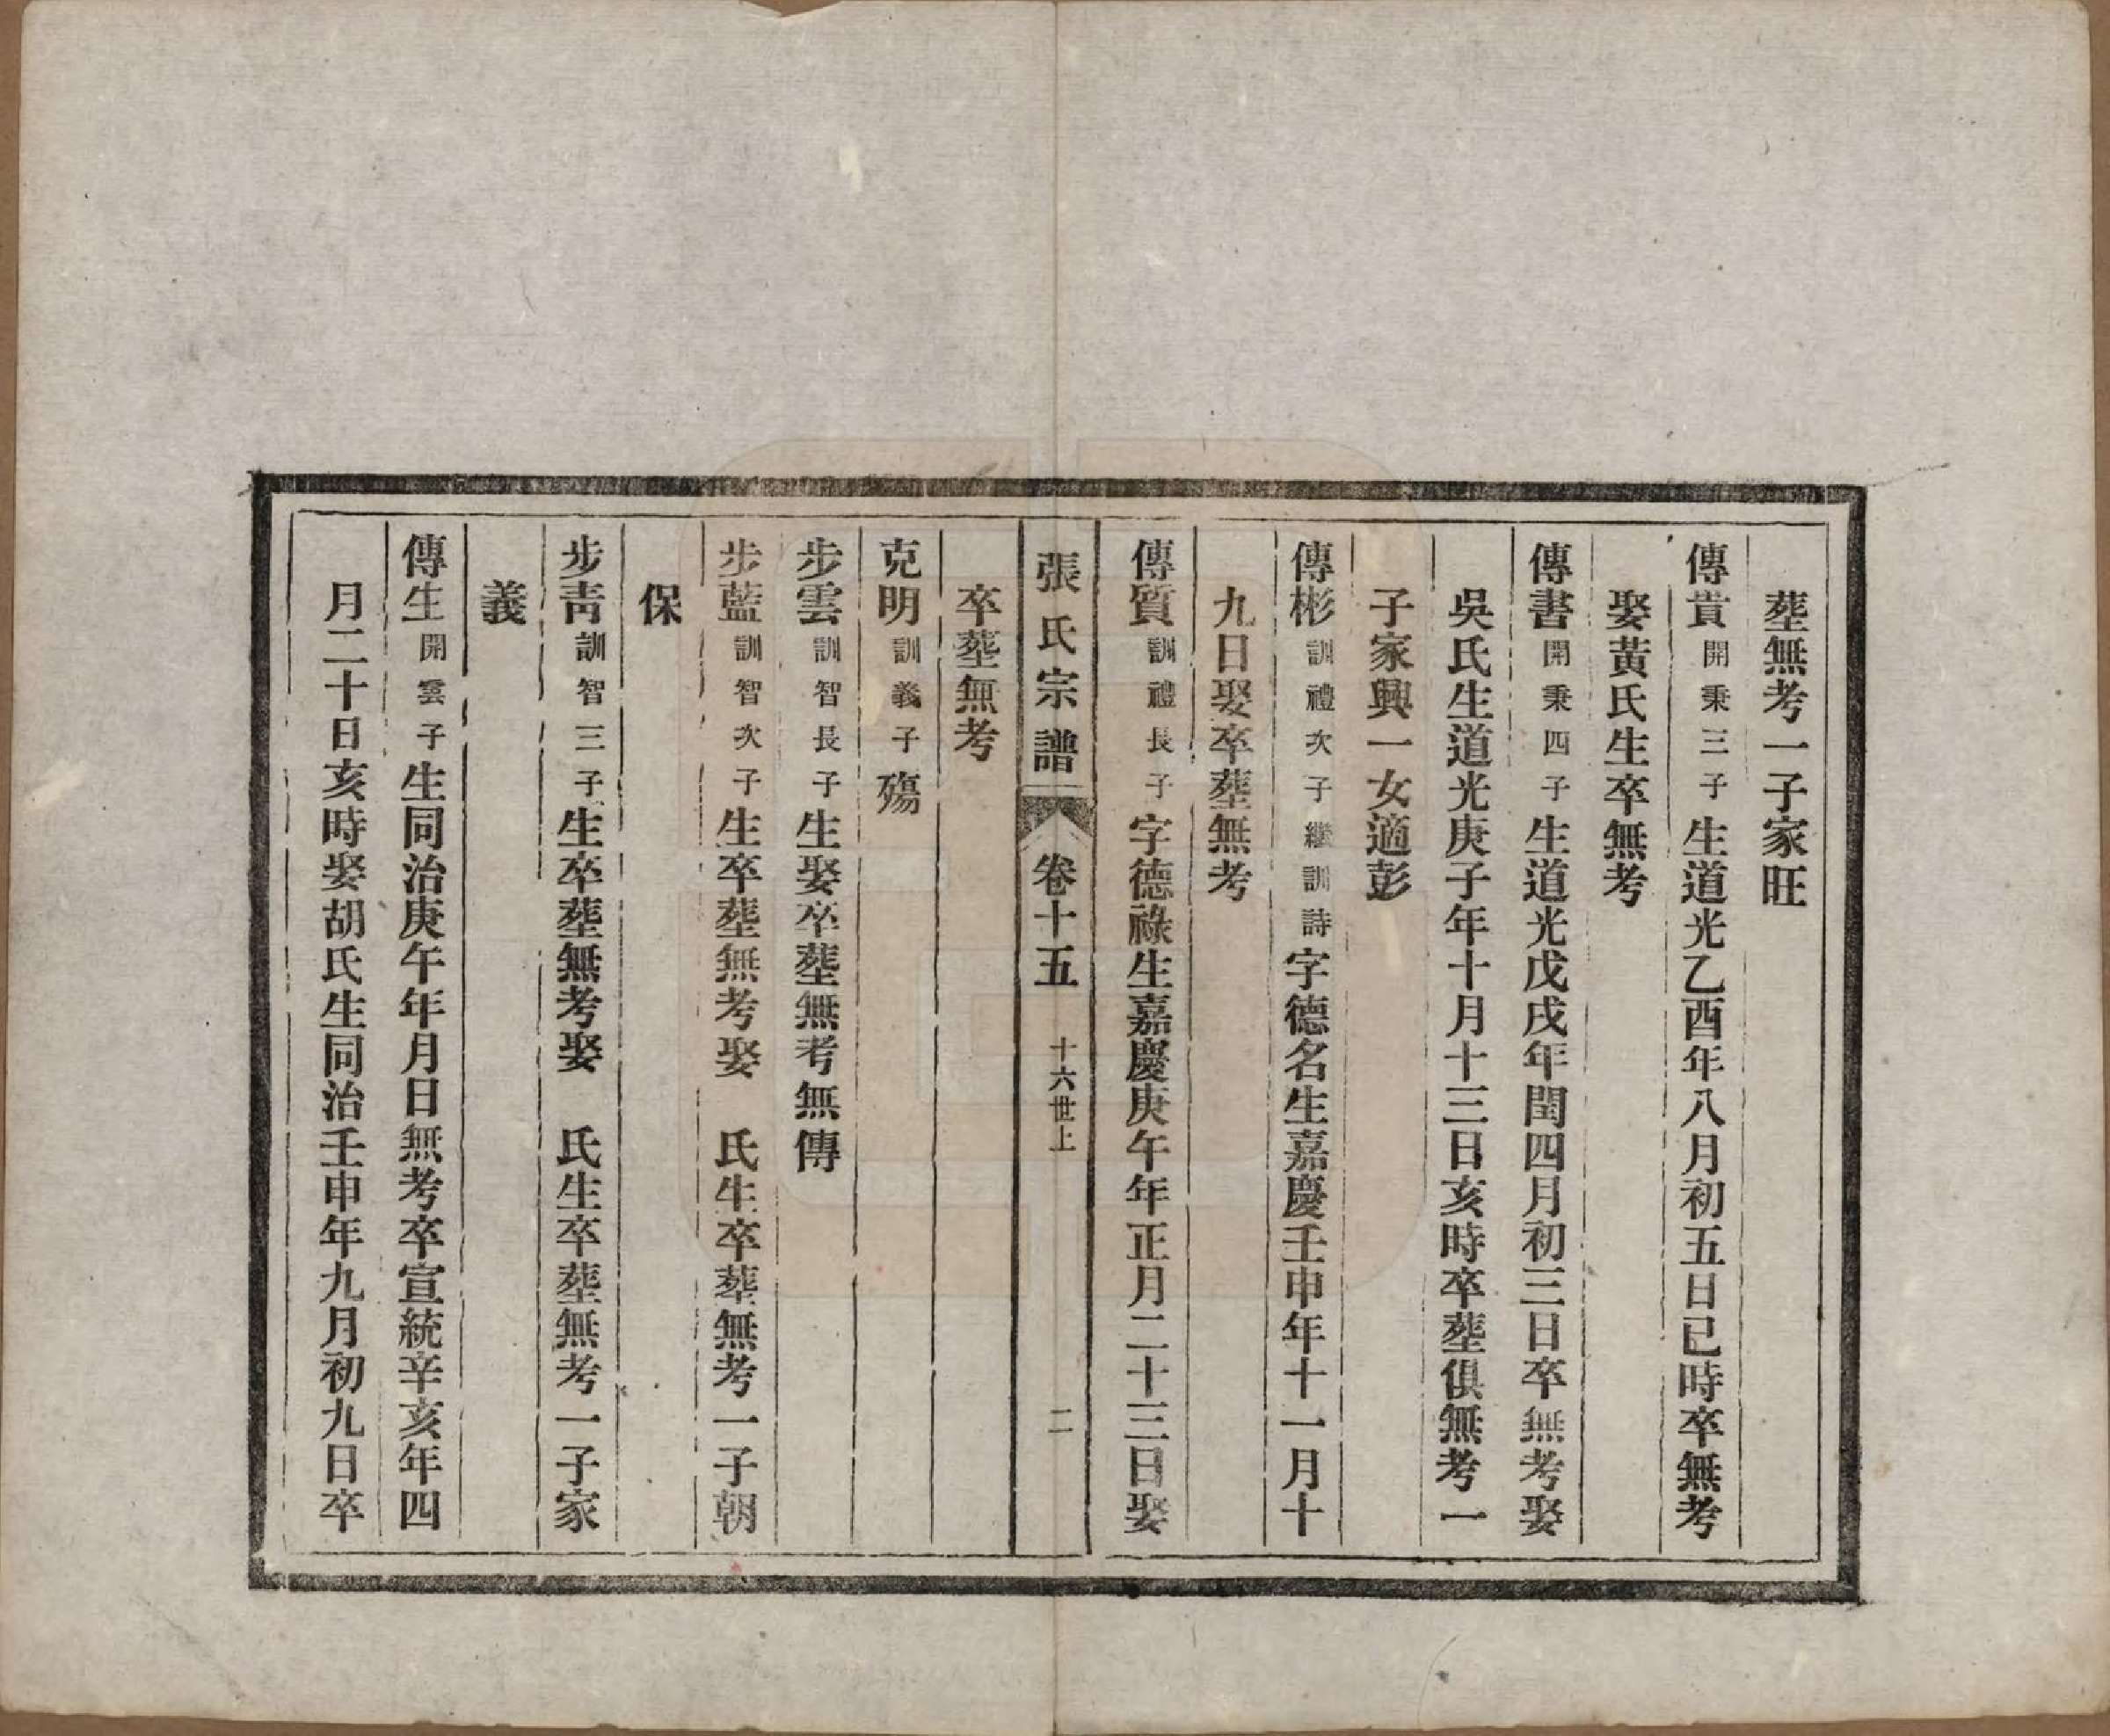 葬無考一子家旺
傳貴開秉三子生道光乙酉年八月初五日巳時卒無考
娶黃氏生卒無考
傳書開秉四子生道光戊戌年閏四月初三日卒無考娶
吳氏生道光庚子年十月十三日亥時卒葬俱無考一
子家興一女適彭
傳彬訓禮次子繼訓詩字德名生嘉慶壬申年十一月十
九日娶卒葬無考
傳質訓禮長子字德祿生嘉慶庚午年正月二十三日娶
張氏宗譜 卷十五 十六世上 二
卒葬無考
克明訓義子殤
步雲訓智長子生娶卒葬無考無傳
步藍訓智次子生卒葬無考娶 氏生卒葬無考一子朝
保
步靑訓智三子生卒葬無考娶 氏生卒葬無考一子家
義
傳生開雲子生同治庚午年月日無考卒宣統辛亥年四
月二十日亥時娶胡氏生同治壬申年九月初九日卒